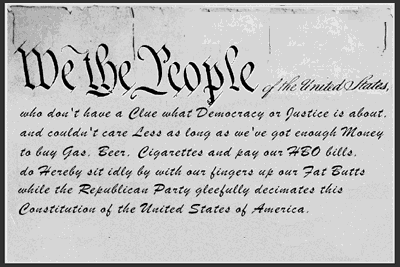 We the People of the United States,
who don't have a Clue what Democracy or Justice is about,
and couldn't care Less as long as we've got enough Money
to buy Gas, Beer, Cigarettes and pay our HBO bills,
do Hereby sit idly by with our fingers up our Fat Butts
while the Republican Party gleefully decimates this
Constitution of the United States of America.